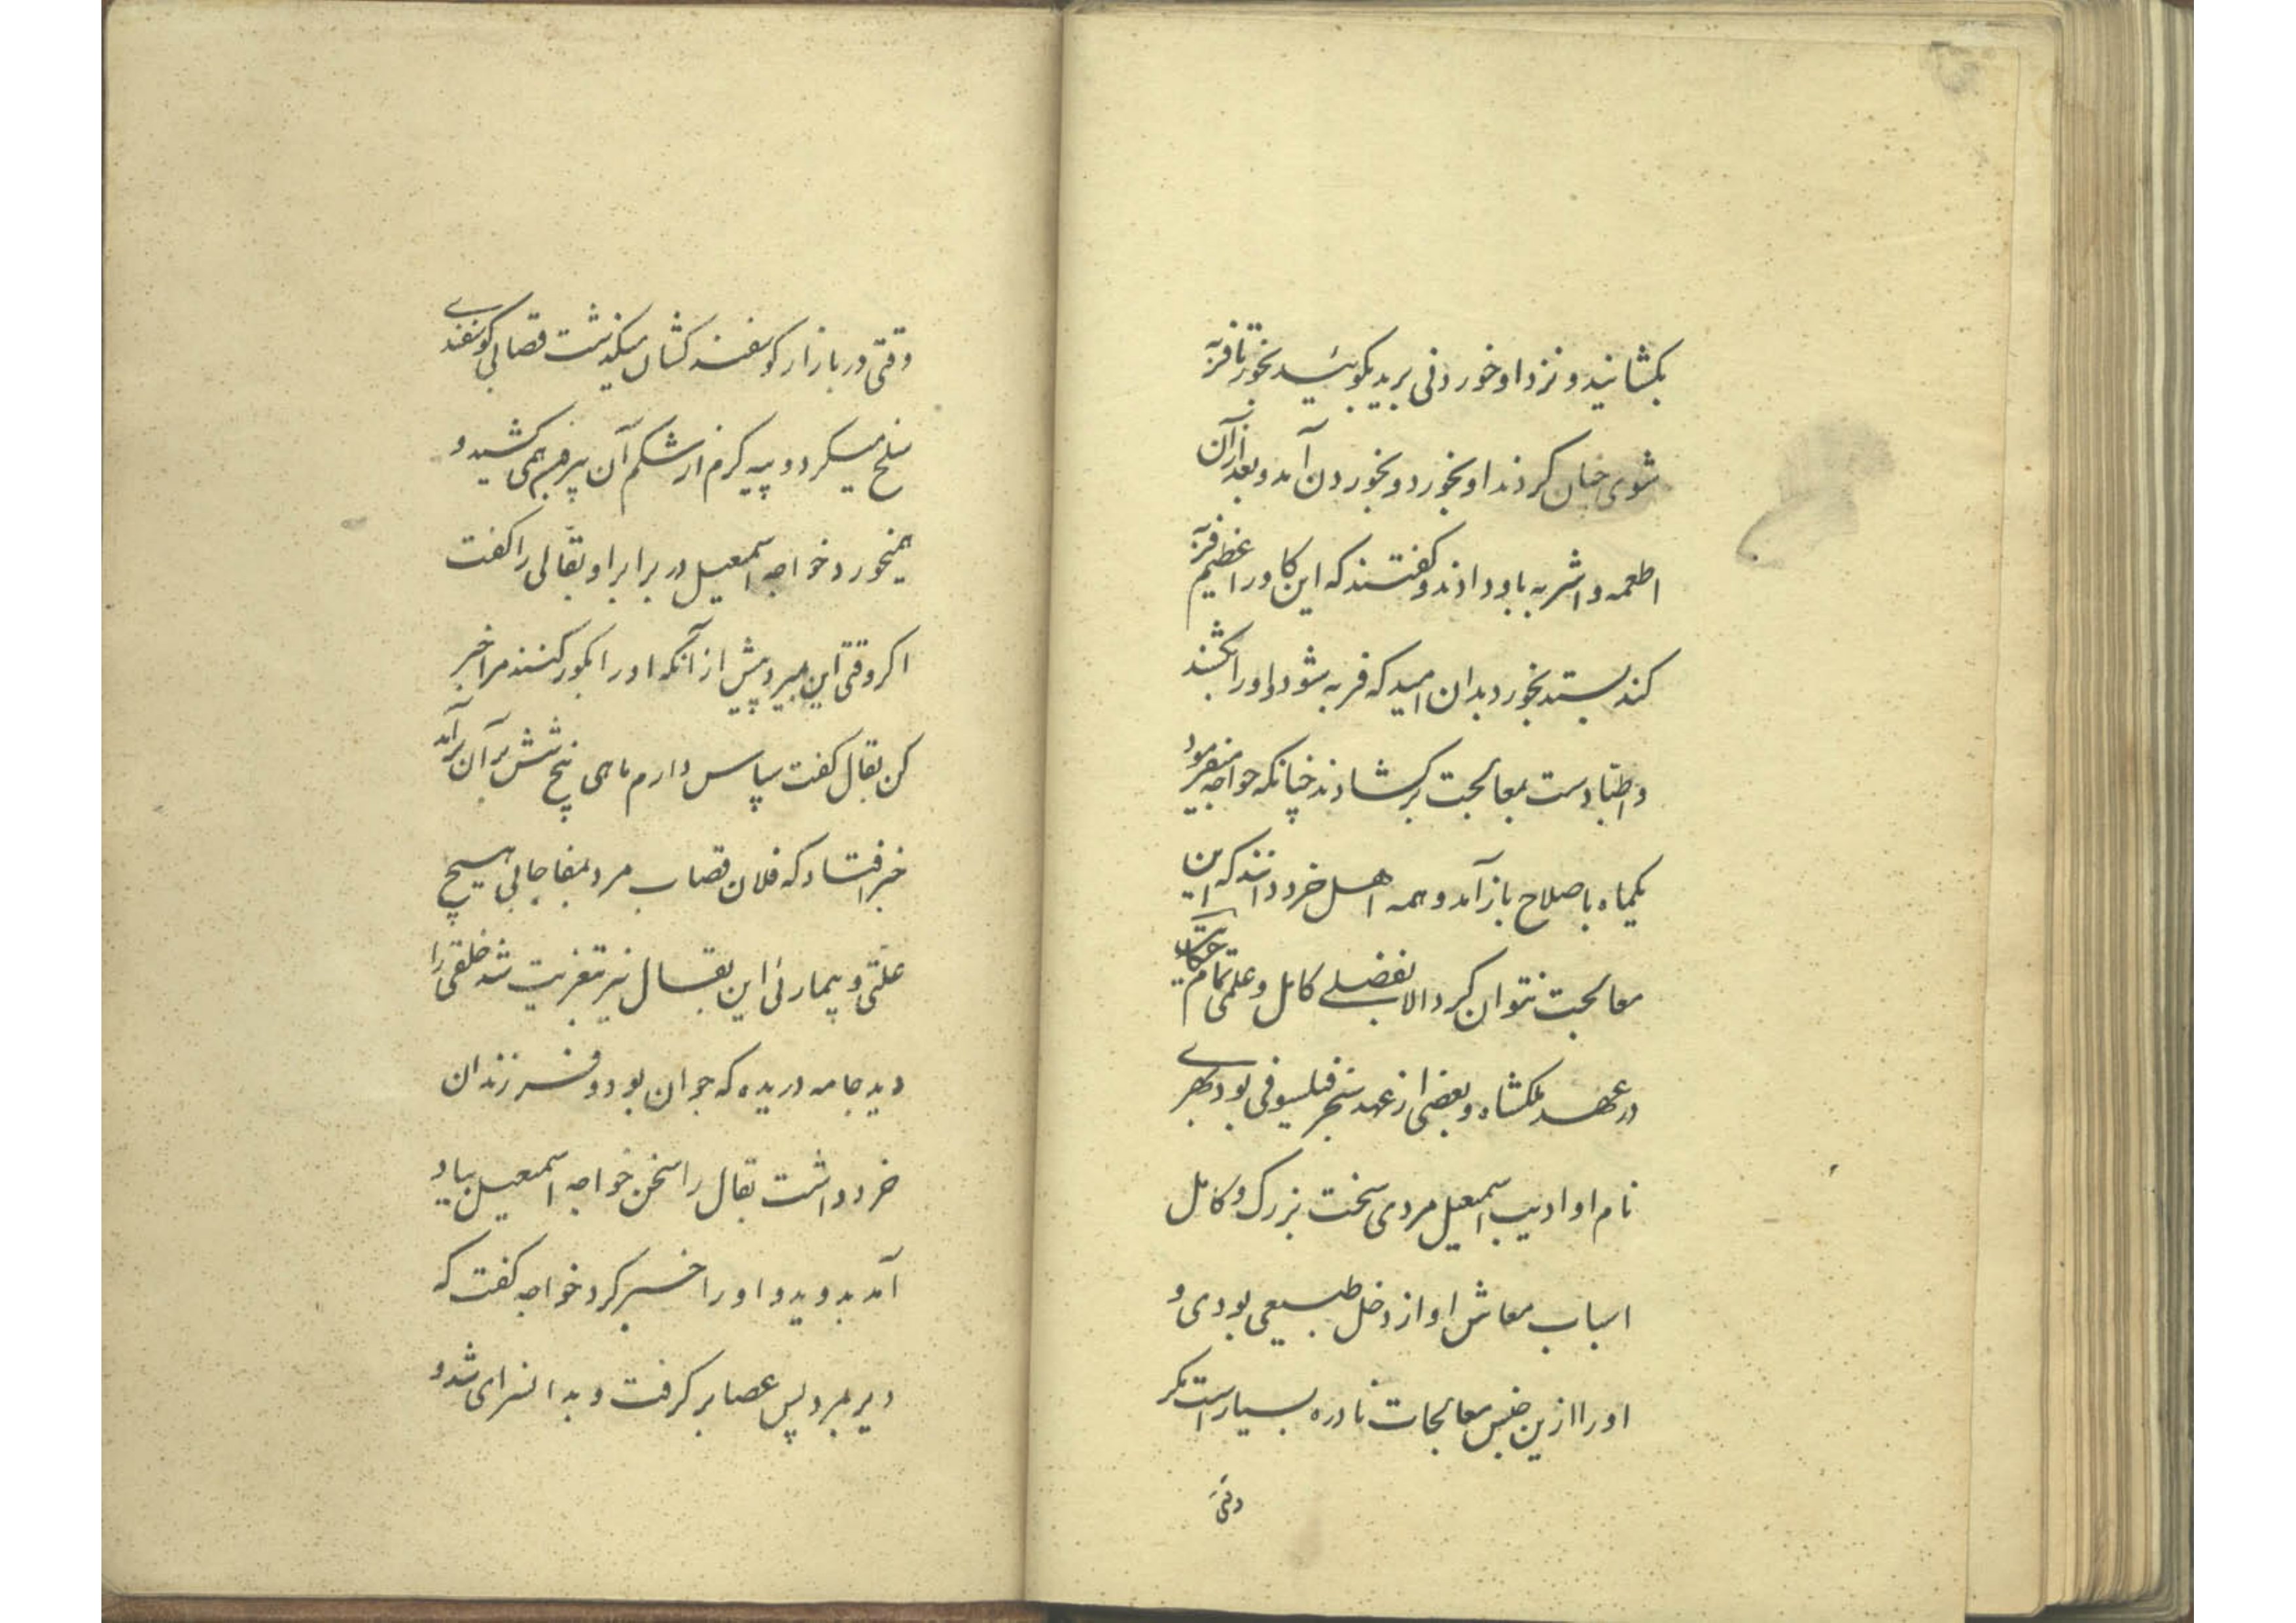 بکشانید و نزد او خوردنی برید بکوئید بخور تا فربه
شوی چنان کردند او بخورد و بخوردن آمد و بعد از آن
اطعمه و اشربه باو دادند و کفتند که این کاو را عظیم فربه
کند بستد بخورد بدان امید که فربه شود و او را بکشند
و اطبا دست بمعالجت برکشادند چنانکه خواجه میفرمود
یکماه باصلاح باز آمد و همه اهل خرد دانند که این
معالجت نتوان کرد الا بفضلے کامل و علمی تمام حکایت
در عهد ملکشاه و بعضی از عهد سنجر فیلسوفی بود بهرے
نام او ادیب اسمعیل مردی سخت بزرک و کامل
اسباب معاش او از دخل طبیعی بودی و
او را ازین جنس معالجات نادره بسیار است مکر
وقتی
وقتی در بازار کوسفند کشان میکذشت قصابی کوسفندے
سلخ میکرد و پیه کرم از شکم آن بره همی کشید و
همیخورد خواجه اسمعیل در برابر او بقالی را کفت
اکر وقتی این بمیرد پیش از آنکه او را بکور کنند مرا خبر
کن بقال کفت سپاس دارم ماهی پنج شش بر آن برآمد
خبر افتاد که فلان قصاب مرد بمفاجا بی هیچ
علتی و بیمارئی این بقال نیز بتعزیت شد خلقی را
دید جامه دریده که جوان بود و فرزندان
خرد داشت بقال را سخن خواجه اسمعیل بیاد
آمد بدوید و او را خبر کرد خواجه کفت که
دیر بمرد پس عصا بر کرفت و بدانسرای شد و